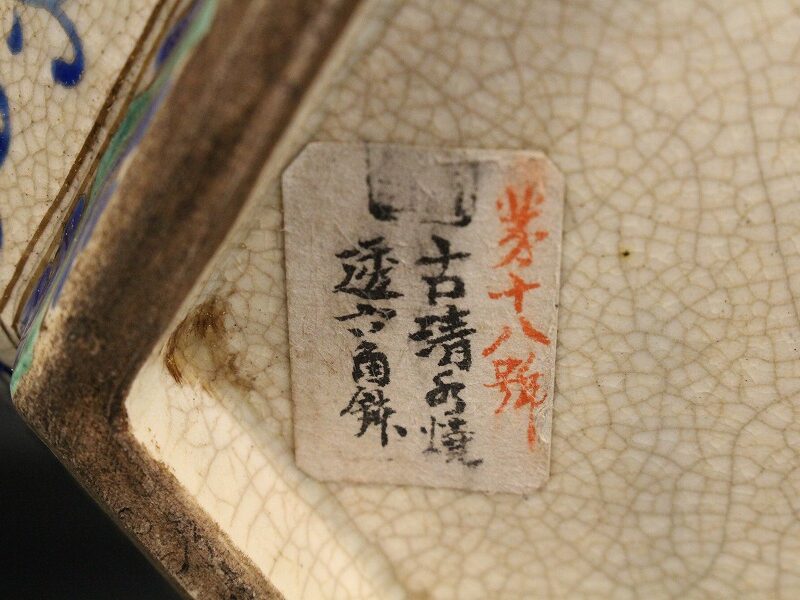 第十八號
古清水焼
透六角鉢